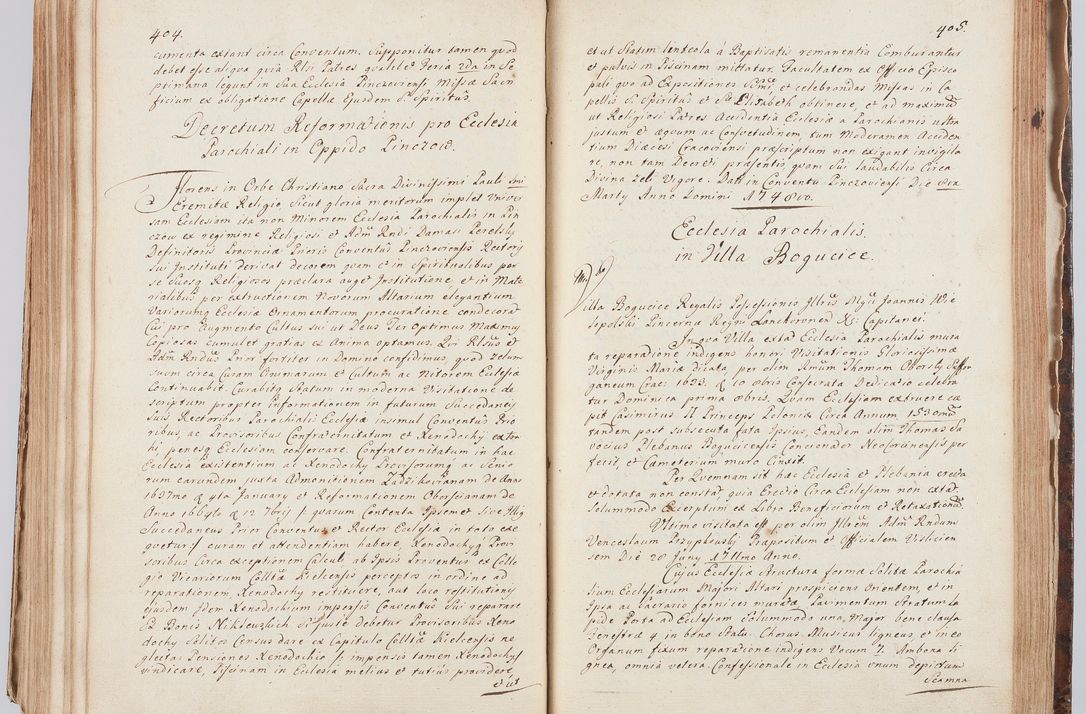 404.
cumenta extant circa Conventum. Supponitur tamen quod
debet esse aliqua quia Rlsi Patres qualibet Feria 2da in Se
ptimana legunt in Sua Ecclesia Pinczoviensi Missæ Sacri
ficium ex obligatione Capellæ Ejusdem Sti Spiritus.
Decretum Reformationis pro Ecclesia
Parochiali in Oppido Pinczow.
Florens in Orbe Christiano Sacra Divinissimi Pauli 1mi
Eremitæ Religio Sicut gloria meritorum implet Univer
sam Ecclesiam ita non Minorem Ecclesia Parochialis in Pin
czow ex regimine Religiosi et Adm Rndi Damasi
Definitoris Provinciæ Prioris Conventus Pinczoviensis Rectoris
Sui Instituti derivat decorem quam et in Spiritualibus per
se Suosq Religiosos præclara auget Institutione et in Mate
rialibus per extructionem Novorum Altarium elegantium
Variorumq Ecclesiæ Ornamentorum procuratione condecorat
Cui pro Augmento Cultus sui ut Deus Ter Optimus Maximus
Copiosas cumulet gratias ex Animo optamus. Qui Rlsus et
Adm Rndus Prior fortiter in Domino confidimus, quod zelum
suum circa Curam Animarum et Cultum ac Nitorem Ecclesiæ
Continuabit. Curabitq Statum in moderna Visitatione de
scriptum propter Informationem in futurum Succedantis
Suis Rectoribus Parochialis Ecclesiæ insimul Conventus Prio
ribus, ac Provisoribus Confraternitatum et Xenodochy extra
hi penesq Ecclesiam conservare. Confraternitatum in hac
Ecclesia existentium ac Xenodochy Provisorumq ac Senio
rum earundem juxta Admonitionem Ladzikocianam de Anno
1637mo d 4ta January et Reformationem Oborscianam de
Anno 1664to d 22 7bris quarum Contenta Ipsemet Sive Illius
Succedaneus Prior Conventus et Rector Ecclesiæ in toto exe
quetur curam et attendentiam habere, Xenodochy Provi
soribus Circa exceptionem Calculi ab Ipsis Proventus ex Colle
gio Vicariorum Colltæ Kielcensis perceptos in ordine ad
reparationem Xenodochy restituere, aut loco restitutionis
ejusdem Idem Xenodochium impensis Conventus Sui reparare
Ex Bonis si juste debetur Provisoribus Xeno
dochy Solitos Census dare ex Capitulo Colltæ Kielcensis ne
glectas Pensiones Xenodochio impensis tamen Xenodochy
vindicare, Piscinam in Ecclesia melius et tutius providere
et ut
405.
et ut Statim linteola á Baptisatis remanentia Comburantur
et pulvis in Piscinam mittatur. Facultatem ex Officio Episco
pali quo ad Expositiones Smi, et celebrandas Missas in Ca
pellis S. Spiritus et Sta Elisabeth obtinere, et ad maximum
ut Religiosi Patres Accidentia Ecclesiæ a Parochianis ultra
justum et æquum ac Consvetudinem, tum Moderamen Acciden
tium Diæcesi Cracoviensi præscriptum non exigant invigila
re, non tam Decreti præsentis quam Sui laudabilis Circa
Divina zeli Vigore. Datt in Conventu Pinczoviensi Die 6ta
Marty Anno Domini 1748vo.
Ecclesia Parochialis
in Villa Bogucice.
Villa Bogucice Regalis Possessionis Illris Mgci Joannis Wie
lopolski Pincernæ Regni Lanckronen Xi Capitanei.
In qua Villa extat Ecclesia Parochialis mura
ta reparatione indigens honori Visitationis Gloriosissimæ
Virginis Mariæ dicata per olim Rmum Thomam Oborsky Suffra
ganeum Crac: 1633. d 10 8bris Consecrata Dedicatio celebra
tur Dominica prima 8bris. Quam Ecclesiam extruere cæ
pit Casimirus II Princeps Poloniæ Circa Annum
tandem post subsecuta fata Ipsius, Eandem olim Thomas Sa
vocius Plebanus Boguciensis Concionator Neocorcinensis per
fecit, et Cæmeterium muro Cinxit.
Per Quemnam sit hæc Ecclesia et Plebania erecta
et dotata non constat, quia Erectio Circa Ecclesiam non extat
Solummodo Excerptum ex Libro Beneficiorum et Retaxationum.
Ultimo visitata est per olim Illrem Adm Rndum
Venceslaum Przypkowski Præpositum et Officialem Vislicien
sem Die 28 Juny 1711mo Anno.
Cujus Ecclesiæ structura forma Solita Parochia
lium Ecclesiarum Majori Altari prospiciens Orientem, et in
Ipsa ac Sacrario fornices muratæ Pavimentum Stratum la
pide Porta ad Ecclesiam Solummodo una, Major bene clausa
Fenestræ 4 in bono Statu. Chorus Musicus ligneus et in eo
Organum fixum reparatione indigens Vocum 7. Ambona li
gnea, omnia vetera. Confessionale in Ecclesia unum depictum
Scamna